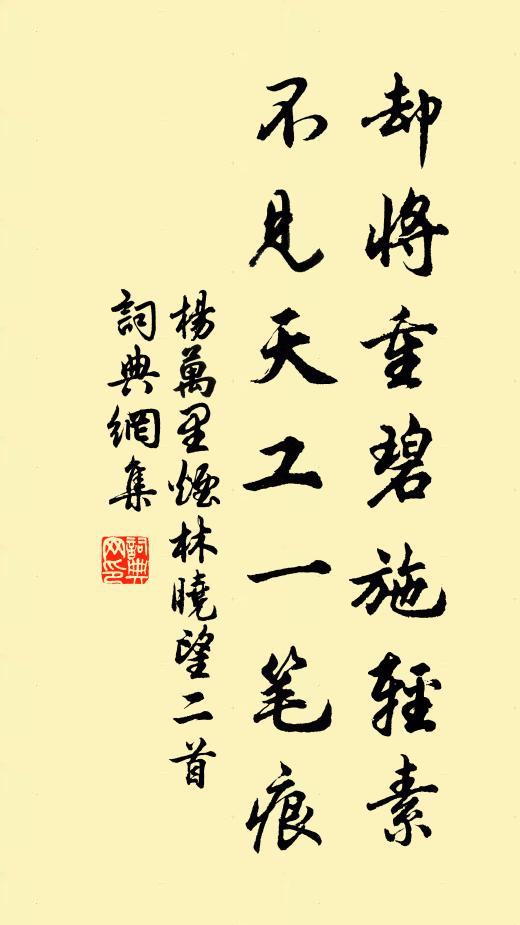 却將重碧施輕素
不見天工一笔痕
楊萬里煙林曉望二首
詞典網集
詞典网印